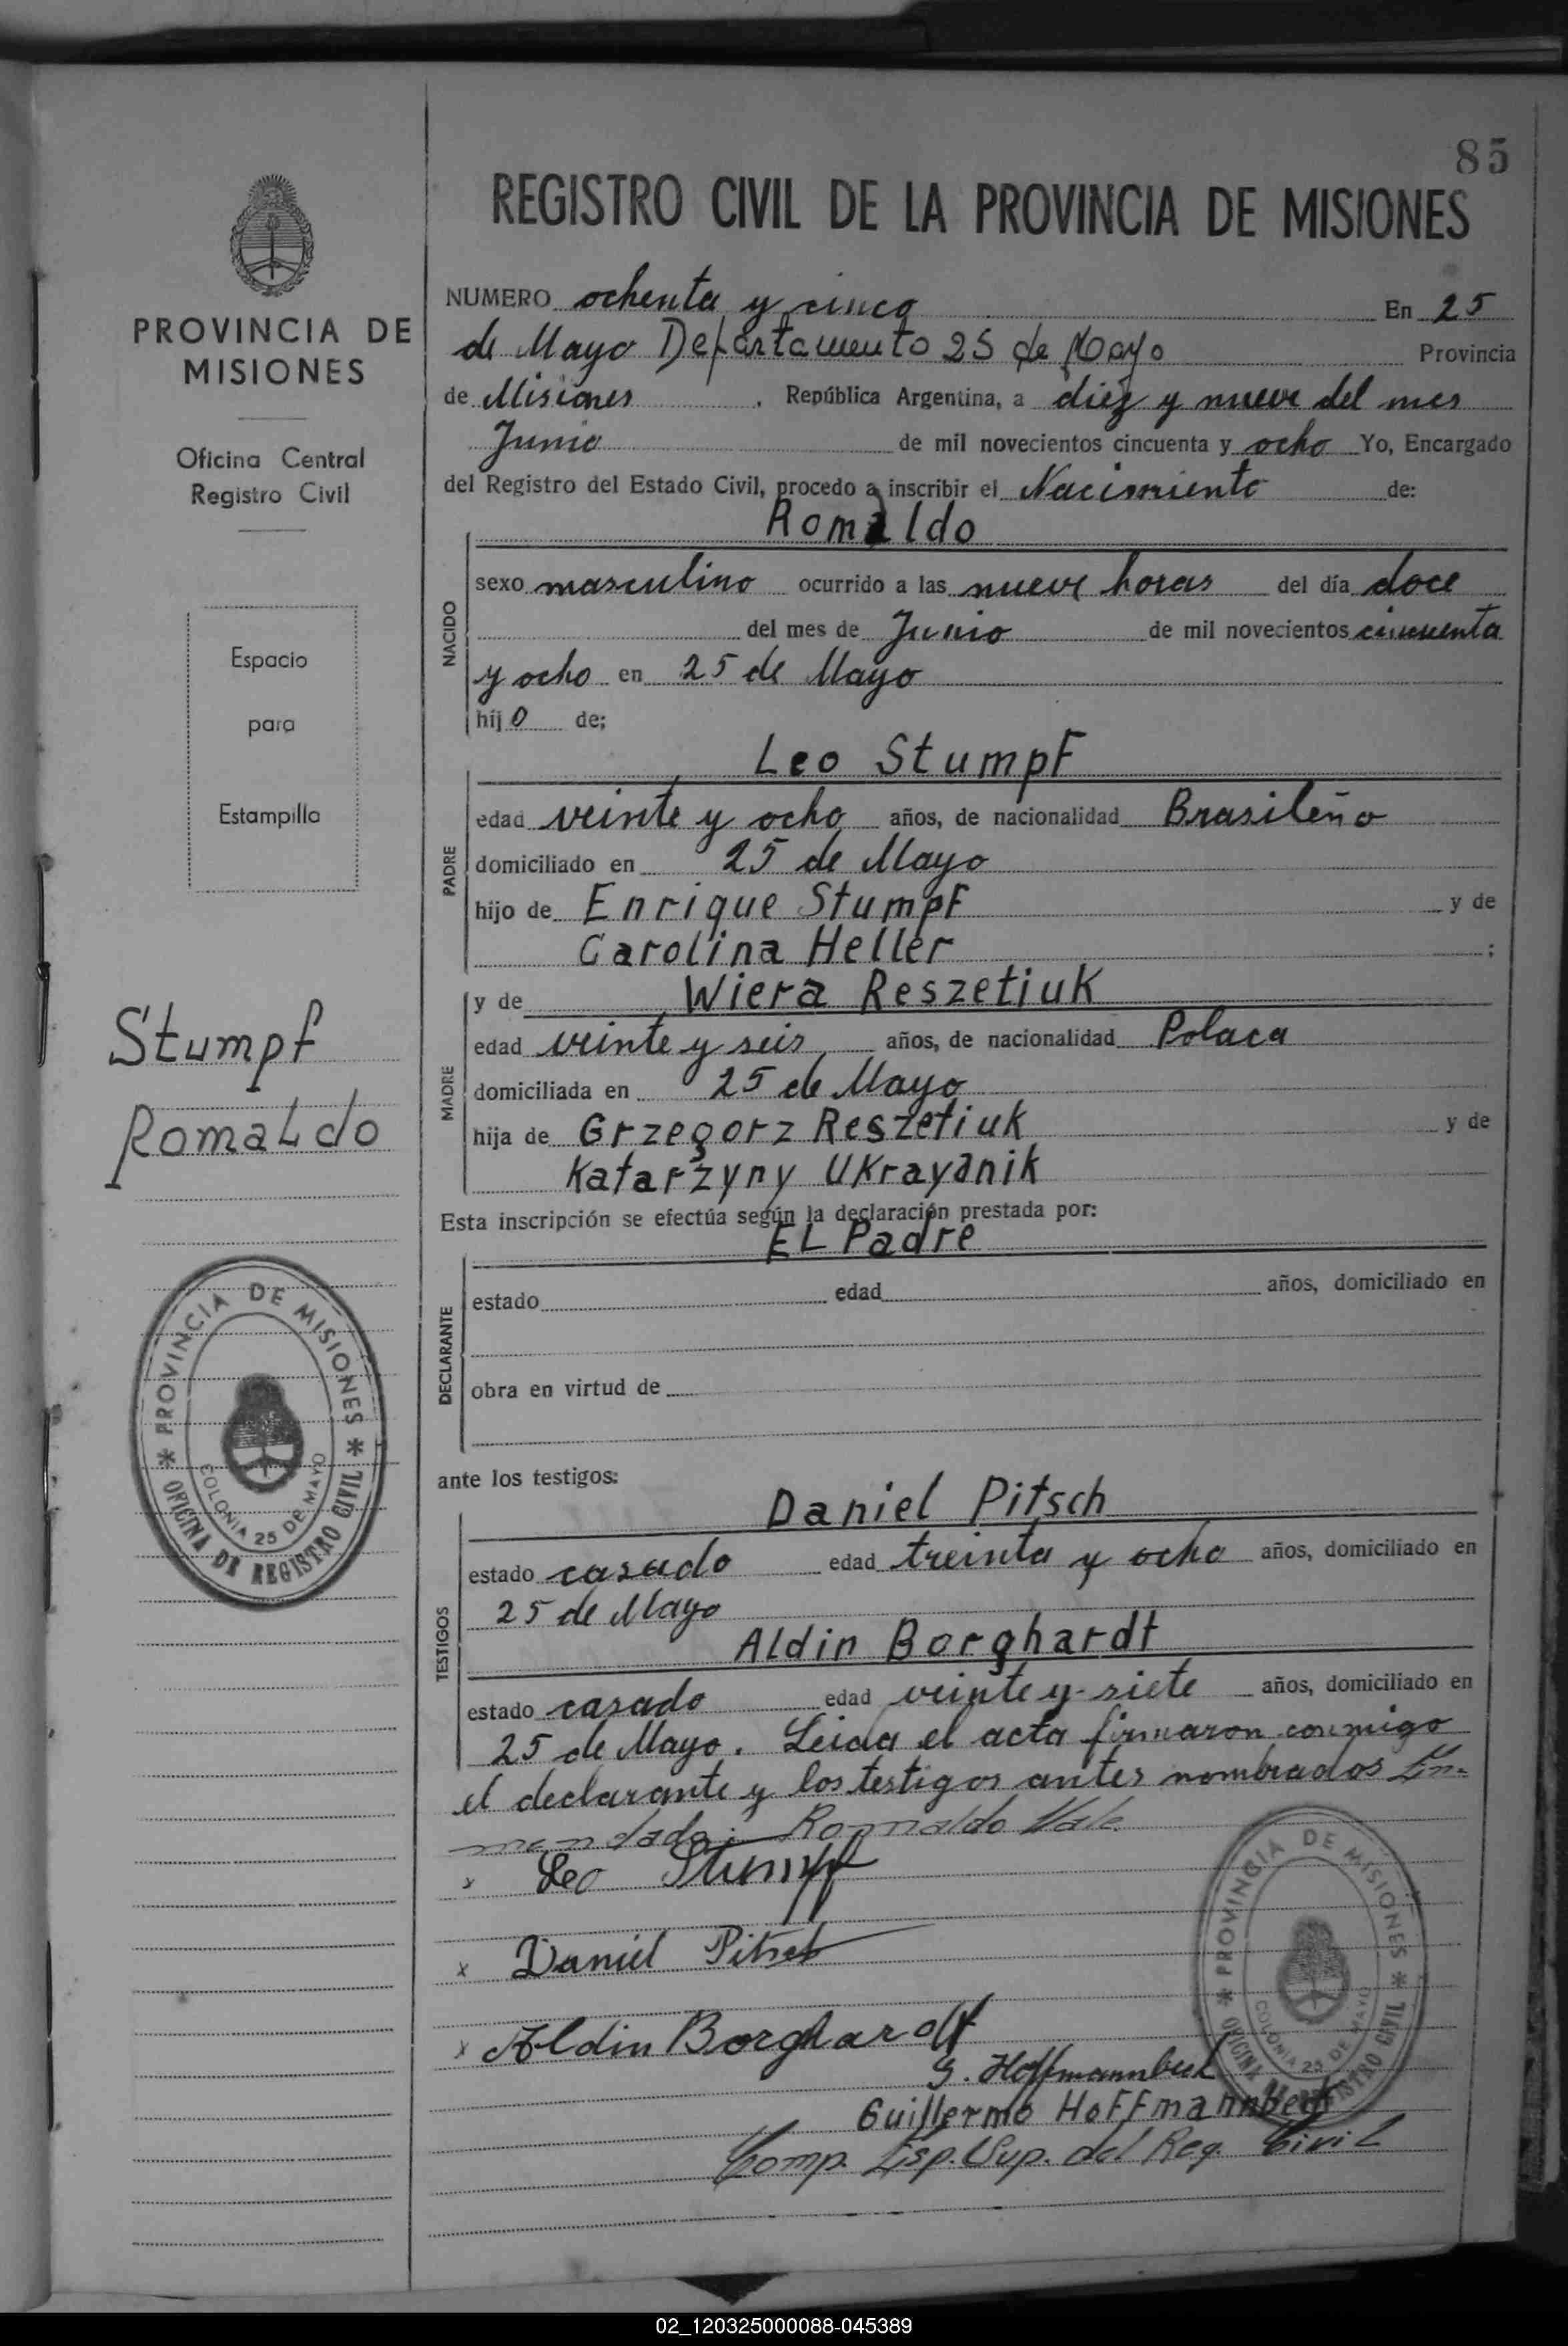 85
REGISTRO CIVIL DE LA PROVINCIA DE MISIONES
PROVINCIA DE
MISIONES
Oficina Central
Registro Civil
Espacio
para
Estampilla
Stumpf
Romaldo
PROVINCIA DE MISIONES
COLONIA 25 DE MAYO
OFICINA DE REGISTRO CIVIL
NUMERO ochenta y cinco En 25
de Mayo Departamento 25 de Mayo Provincia
de Misiones, República Argentina, a diez y nueve del mes
Junio de mil novecientos cincuenta y ocho Yo, Encargado
del Registro del Estado Civil, procedo a inscribir el Nacimiento de:
Romaldo
NACIDO
sexo masculino ocurrido a las nueve horas del día doce
del mes de Junio de mil novecientos cincuenta
y ocho en 25 de Mayo
hijo de;
Leo Stumpf
PADRE
edad veinte y ocho años, de nacionalidad Brasileño
domiciliado en 25 de Mayo
hijo de Enrique Stumpf y de
Carolina Heller ;
y de Wiera Reszetiuk
MADRE
edad veinte y seis años, de nacionalidad Polaca
domiciliada en 25 de Mayo
hija de Grzegorz Reszetiuk y de
Katarzyny Ukrayanik
Esta inscripción se efectúa según la declaración prestada por:
EL Padre
DECLARANTE
estado edad años, domiciliado en
obra en virtud de
ante los testigos:
Daniel Pitsch
TESTIGOS
estado casado edad treinta y ocho años, domiciliado en
25 de Mayo
Aldin Borghardt
estado casado edad veinte y siete años, domiciliado en
25 de Mayo. Leida el acta firmaron conmigo
el declarante y los testigos antes nombrados En-
mendado: Romaldo Vale.
x Leo Stumpf
x Daniel Pitsch
x Aldin Borghardt
G. Hoffmannbeck
Guillermo Hoffmannbeck
Comp. Esp. Sup. del Reg. Civil
PROVINCIA DE MISIONES
COLONIA 25 DE MAYO
OFICINA DE REGISTRO CIVIL
02_120325000088-045389